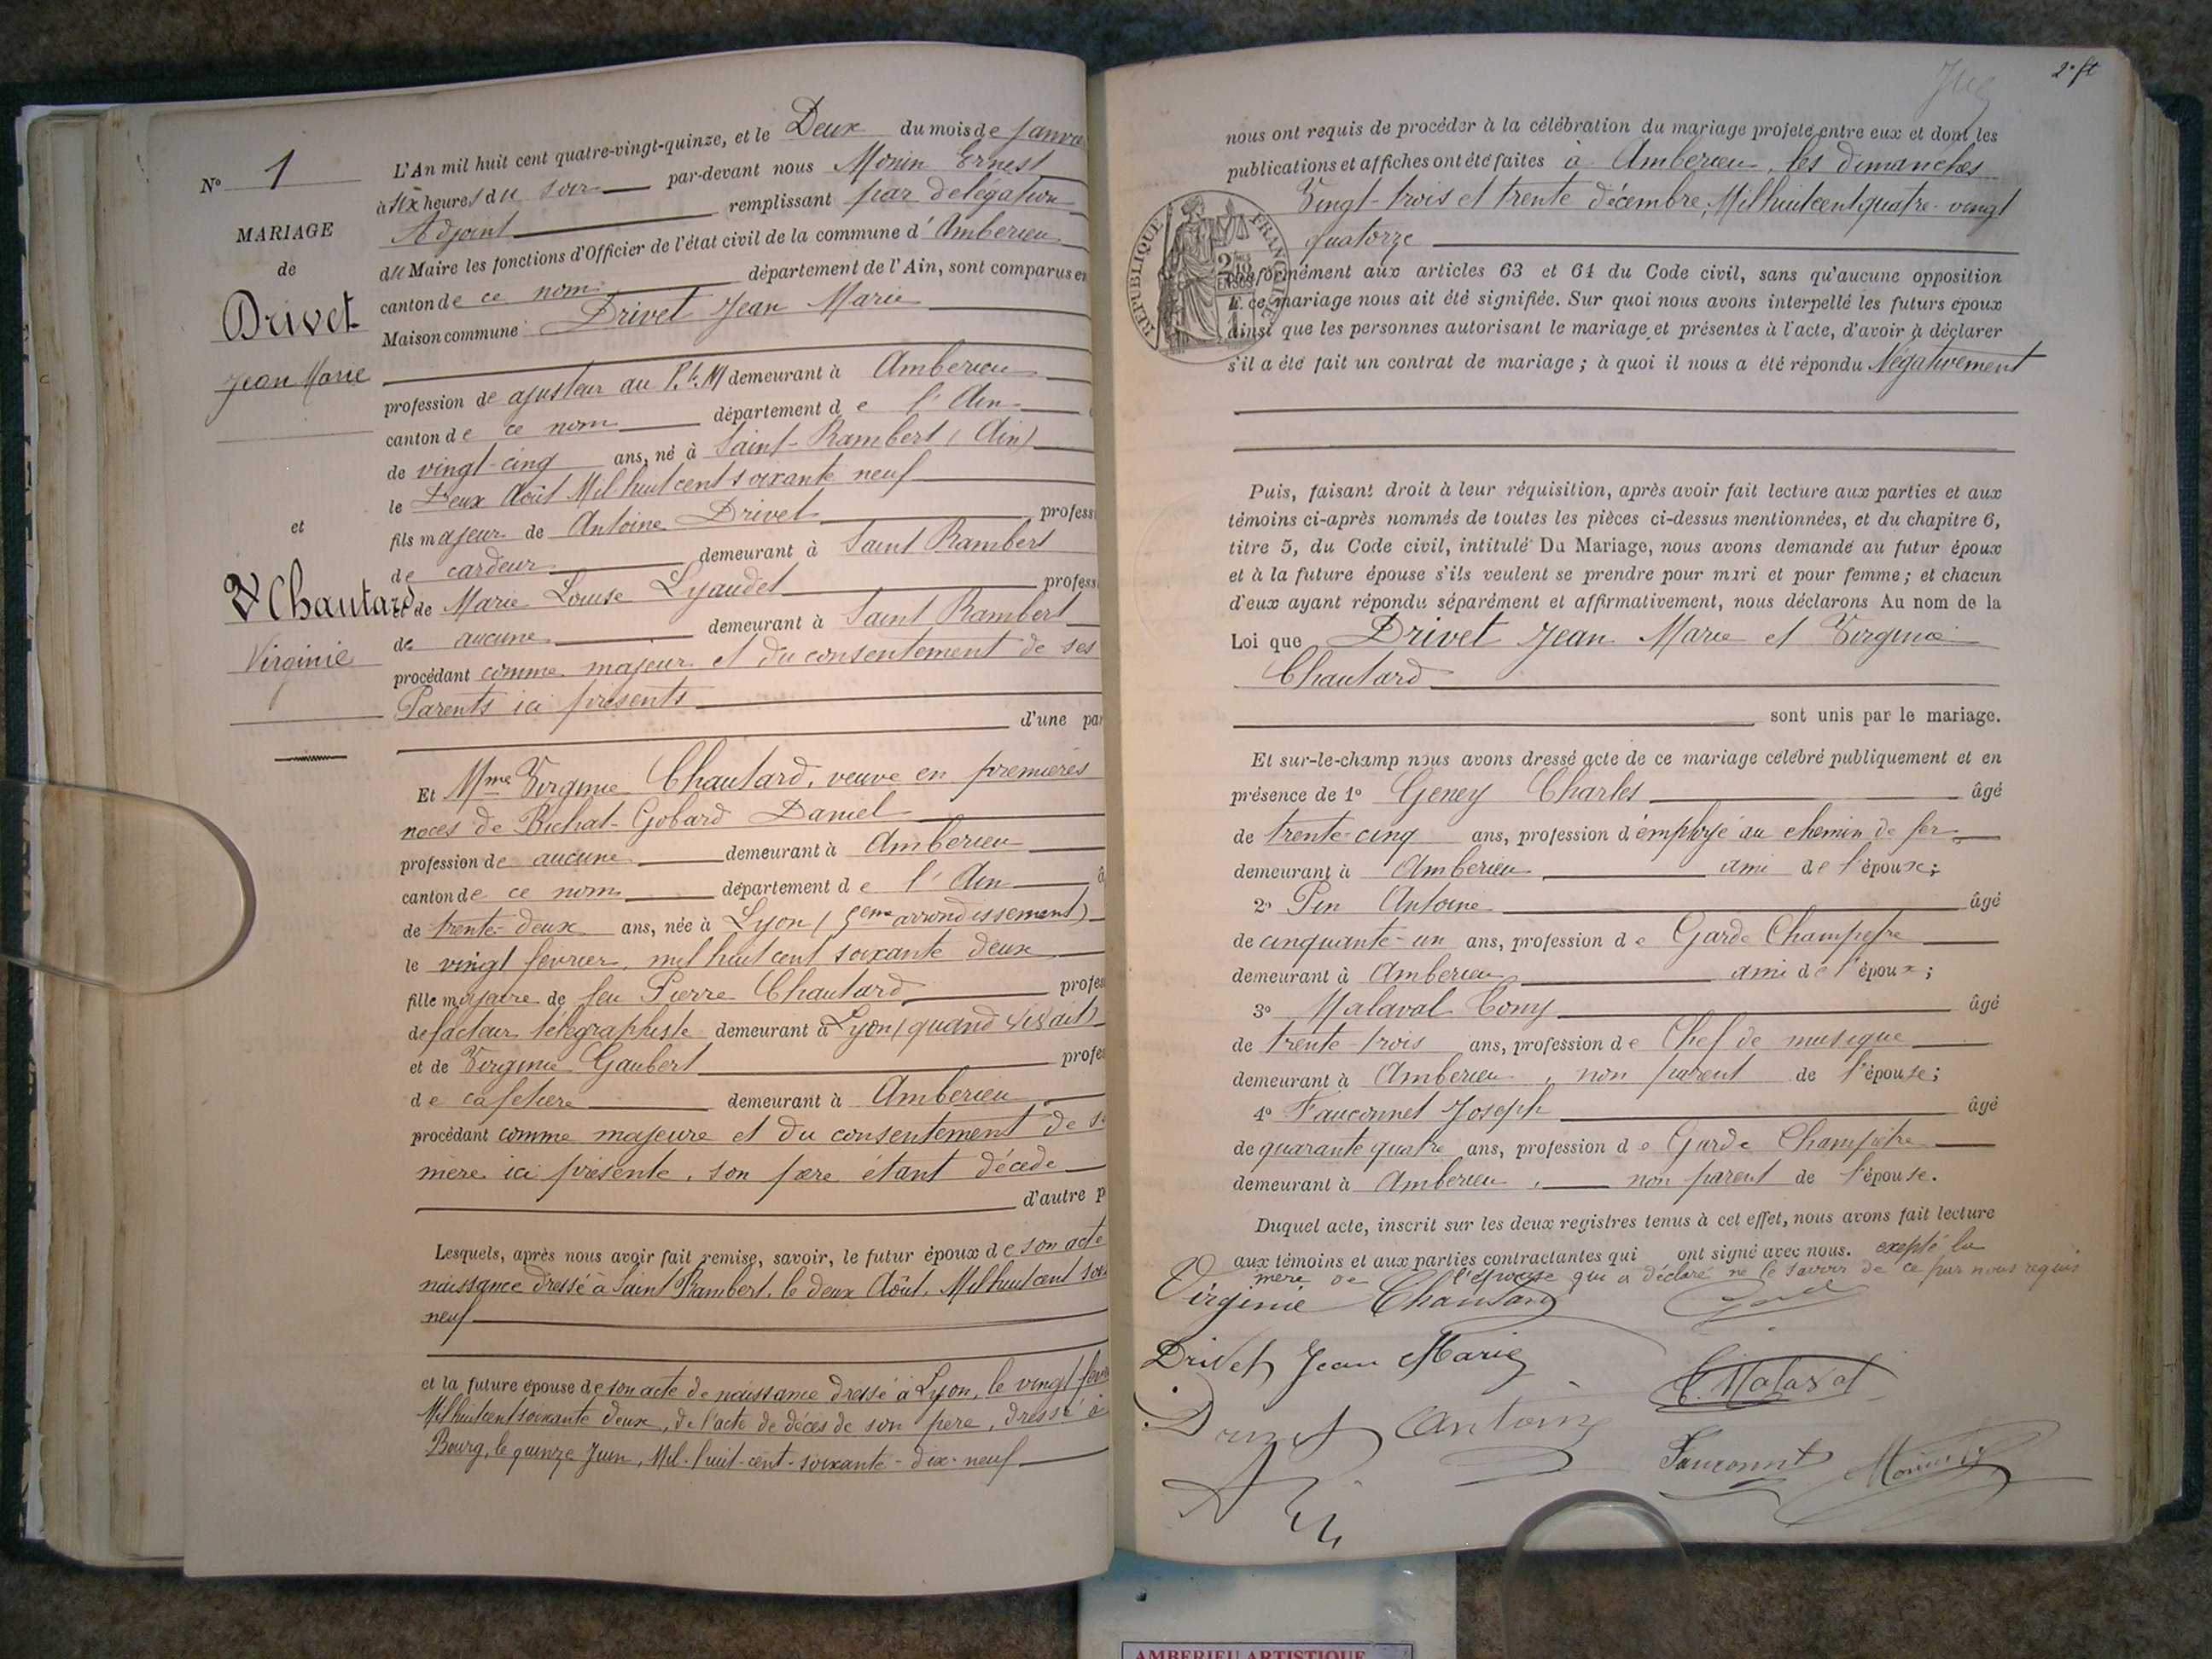 N° 1
MARIAGE
de
Drivet
Jean Marie
et
Vve Chautard
Virginie
L'An mil huit cent quatre-vingt-quinze, et le Deux du mois de Janvie
à six heures du soir par-devant nous Monin Ernest
Adjoint remplissant par délégation
du Maire les fonctions d'Officier de l'état civil de la commune d'Ambérieu
canton de ce nom département de l'Ain, sont comparus en
Maison commune : Drivet Jean Marie
profession de ajusteur au P.L.M demeurant à Ambérieu
canton de ce nom département de l'Ain
de vingt-cinq ans, né à Saint-Rambert (Ain)
le Deux Août Mil huit cent soixante neuf
fils majeur de Antoine Drivet profess
de cardeur demeurant à Saint Rambert
et de Marie Louise Lyaudet profess
de aucune demeurant à Saint Rambert
procédant comme majeur et du consentement de ses
Parents ici présents
d'une par
Et Mme Virginie Chautard, veuve en premières
noces de Bichat-Gobard Daniel
profession de aucune demeurant à Ambérieu
canton de ce nom département de l'Ain â
de trente-deux ans, née à Lyon (5eme arrondissement)
le vingt février, mil huit cent soixante deux
fille majeure de feu Pierre Chautard profes
de facteur télégraphiste demeurant à Lyon (quand vivait)
et de Virginie Gaubert profes
de cafetière demeurant à Ambérieu
procédant comme majeure et du consentement de s
mère ici présente, son père étant décédé
d'autre p
Lesquels, après nous avoir fait remise, savoir, le futur époux de son acte
naissance dressé à Saint Rambert, le deux Août, Mil huit cent soix
neuf
et la future épouse de son acte de naissance dressé à Lyon, le vingt fév
Mil huit cent soixante deux, de l'acte de décès de son père, dressé à
Bourg, le quinze Juin, Mil-huit-cent-soixante-dix-neuf
2e ft
nous ont requis de procéder à la célébration du mariage projeté entre eux et dont les
publications et affiches ont été faites à Ambérieu, les dimanches
Vingt-trois et trente décembre, Mil huit cent quatre-vingt
quatorze
RÉPUBLIQUE FRANÇAISE
conformément aux articles 63 et 64 du Code civil, sans qu'aucune opposition
à ce mariage nous ait été signifiée. Sur quoi nous avons interpellé les futurs époux
ainsi que les personnes autorisant le mariage et présentes à l'acte, d'avoir à déclarer
s'il a été fait un contrat de mariage ; à quoi il nous a été répondu Négativement
Puis, faisant droit à leur réquisition, après avoir fait lecture aux parties et aux
témoins ci-après nommés de toutes les pièces ci-dessus mentionnées, et du chapitre 6,
titre 5, du Code civil, intitulé Du Mariage, nous avons demandé au futur époux
et à la future épouse s'ils veulent se prendre pour mari et pour femme ; et chacun
d'eux ayant répondu séparément et affirmativement, nous déclarons Au nom de la
Loi que Drivet Jean Marie et Virginie
Chautard
sont unis par le mariage.
Et sur-le-champ nous avons dressé acte de ce mariage célébré publiquement et en
présence de 1° Geney Charles âgé
de trente-cinq ans, profession d'employé au chemin de fer
demeurant à Ambérieu ami de l'époux ;
2° Pin Antoine âgé
de cinquante-un ans, profession de Garde Champêtre
demeurant à Ambérieu, ami de l'époux ;
3° Malaval Tony âgé
de trente-trois ans, profession de Chef de musique
demeurant à Ambérieu, non parent de l'épouse ;
4° Fauconnet Joseph âgé
de quarante quatre ans, profession de Garde Champêtre
demeurant à Ambérieu, non parent de l'épouse.
Duquel acte, inscrit sur les deux registres tenus à cet effet, nous avons fait lecture
aux témoins et aux parties contractantes qui ont signé avec nous. excepté la
mère de l'épouse qui a déclaré ne le savoir de ce par nous requis
Virginie Chautard
Drivet Jean Marie
T. Malaval
Drivet Antoine
Fauconnet Monin
AMBERIEU ARTISTIQUE